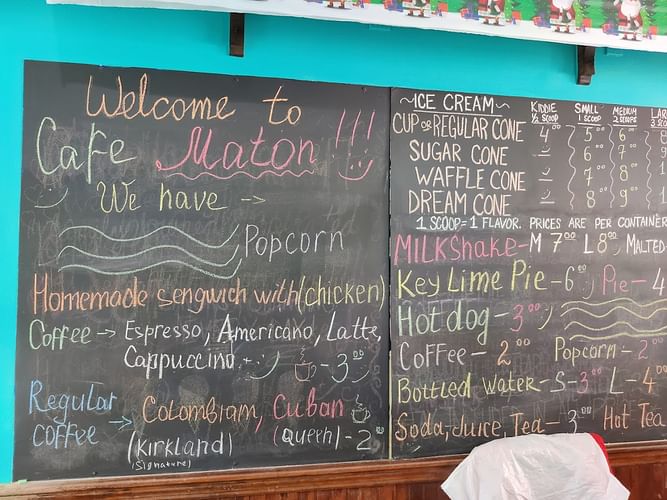 Welcome to
Cafe Maton !!!
We have ->
Popcorn
Homemade sengwich with (chicken)
Coffee -> Espresso, Americano, Latte,
Cappuccino - 3.00
Regular coffee -> Colombiam, Cuban
(Kirkland) (Queen) - 2.00
(Signature)
~ICE CREAM~ KIDDIE SMALL MEDIUM
½ SCOOP 1 SCOOP 2 SCOOPS
CUP or REGULAR CONE 4.00 5.00 6.00
SUGAR CONE - 6.00 7.00
WAFFLE CONE - 7.00 8.00
DREAM CONE - 8.00 9.00
1 SCOOP = 1 FLAVOR. PRICES ARE PER CONTAINER
MILKSHAKE - M 7.00 L 8.00, MALTED
Key Lime Pie - 6.00 Pie - 4
Hot dog - 3.00
Coffee - 2.00 Popcorn - 2.00
Bottled water - S - 3.00 L - 4.00
Soda, Juice, Tea - 3.00 Hot Tea